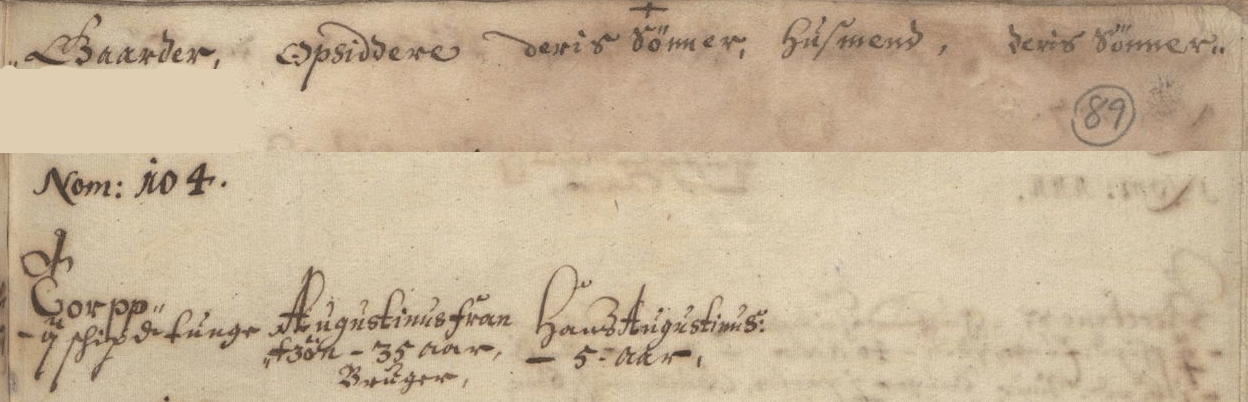 Gaarder, Opsiddere deris Sönner, Hüsmend, deris Sönner..
89
Nom: 104.
Torpp
Augustinus Fran Hans Augustinus:
tzön - 35 aar, - 5 - aar,
Brüger,